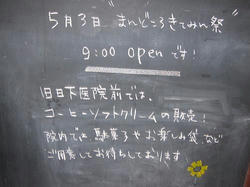 5月3日 まんどころきてみん祭
9:00 openです!
旧日下医院前では、
コーヒーソフトクリームの販売!
院内では駄菓子やお楽しみ袋など
ご用意してお待ちしております